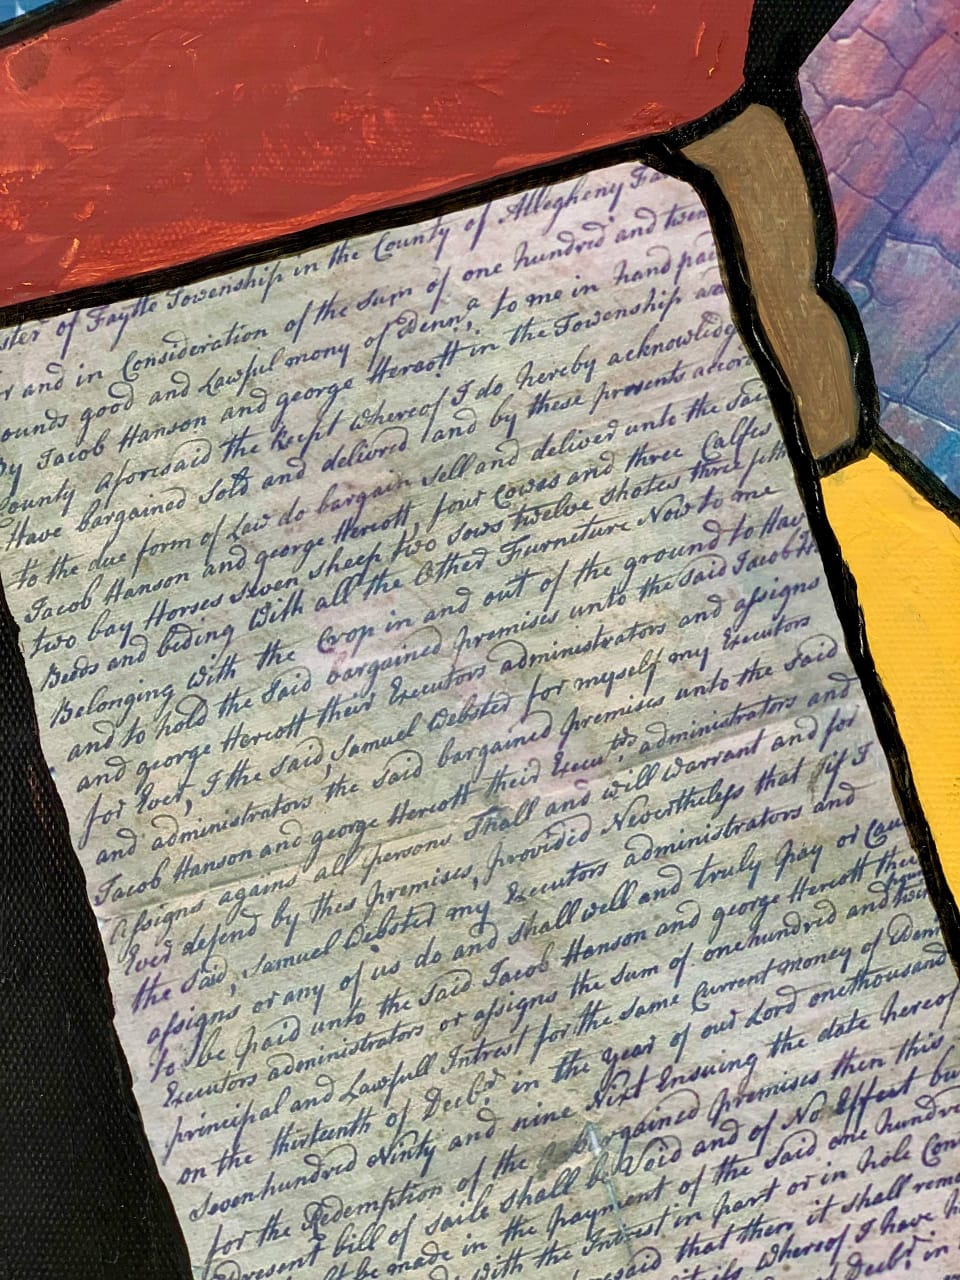 ster of Faytte Township in the County of Allegheny Fa
r and in Consideration of the Sum of one hundred and twen
ounds good and Lawful mony of Penn,a to me in hand pai
By Jacob Hanson and george Hercott in the Township and
County aforesaid the Recpt whereof I do hereby acknowledg
Have bargained Sold and deliverd and by these presents accor
to the due form of Law do bargain sell and deliver unto the Sai
Jacob Hanson and george Hercott, four Cowes and three Calfes
two bay Horses Seven Sheep two sows twelve shotes three
Beeds and beding With all the Other Furneture Now to me
Belonging With the Crop in and out of the ground to Hav
and to hold the Said bargained premises unto the Said Jacob
and george Hercott their Executors administrators and assigns
for Ever, I the Said, Samuel Websted for myself my Executors
and administrators the Said bargained premises unto the Said
Jacob Hanson and george Hercott their Execu.tors administrators and
Assigns agains all persons Shall and will Warrant and for
Ever defend by thes premises, provided Nevertheless that if I
the Said, Samuel Websted my Executors administrators and
assigns or any of us do and shall well and truly pay or Cau
to be paid unto the Said Jacob Hanson and george Hercott their
Executors administrators or assigns the Sum of one hundred and
principal and Lawfull Intrest for the same Current money of Penn
on the thirteenth of Decb.r in the year of our Lord onethousand
Sevenhundred Ninty and nine Next Ensuing the date hereof
for the Redemption of the bargained premises then this
present bill of saile shall be Void and of No Effect bu
be made in the payment of the Said one hundre
with the Intrest in part or in hole Con
said that then it shall rema
whereof I have
Decb.r in